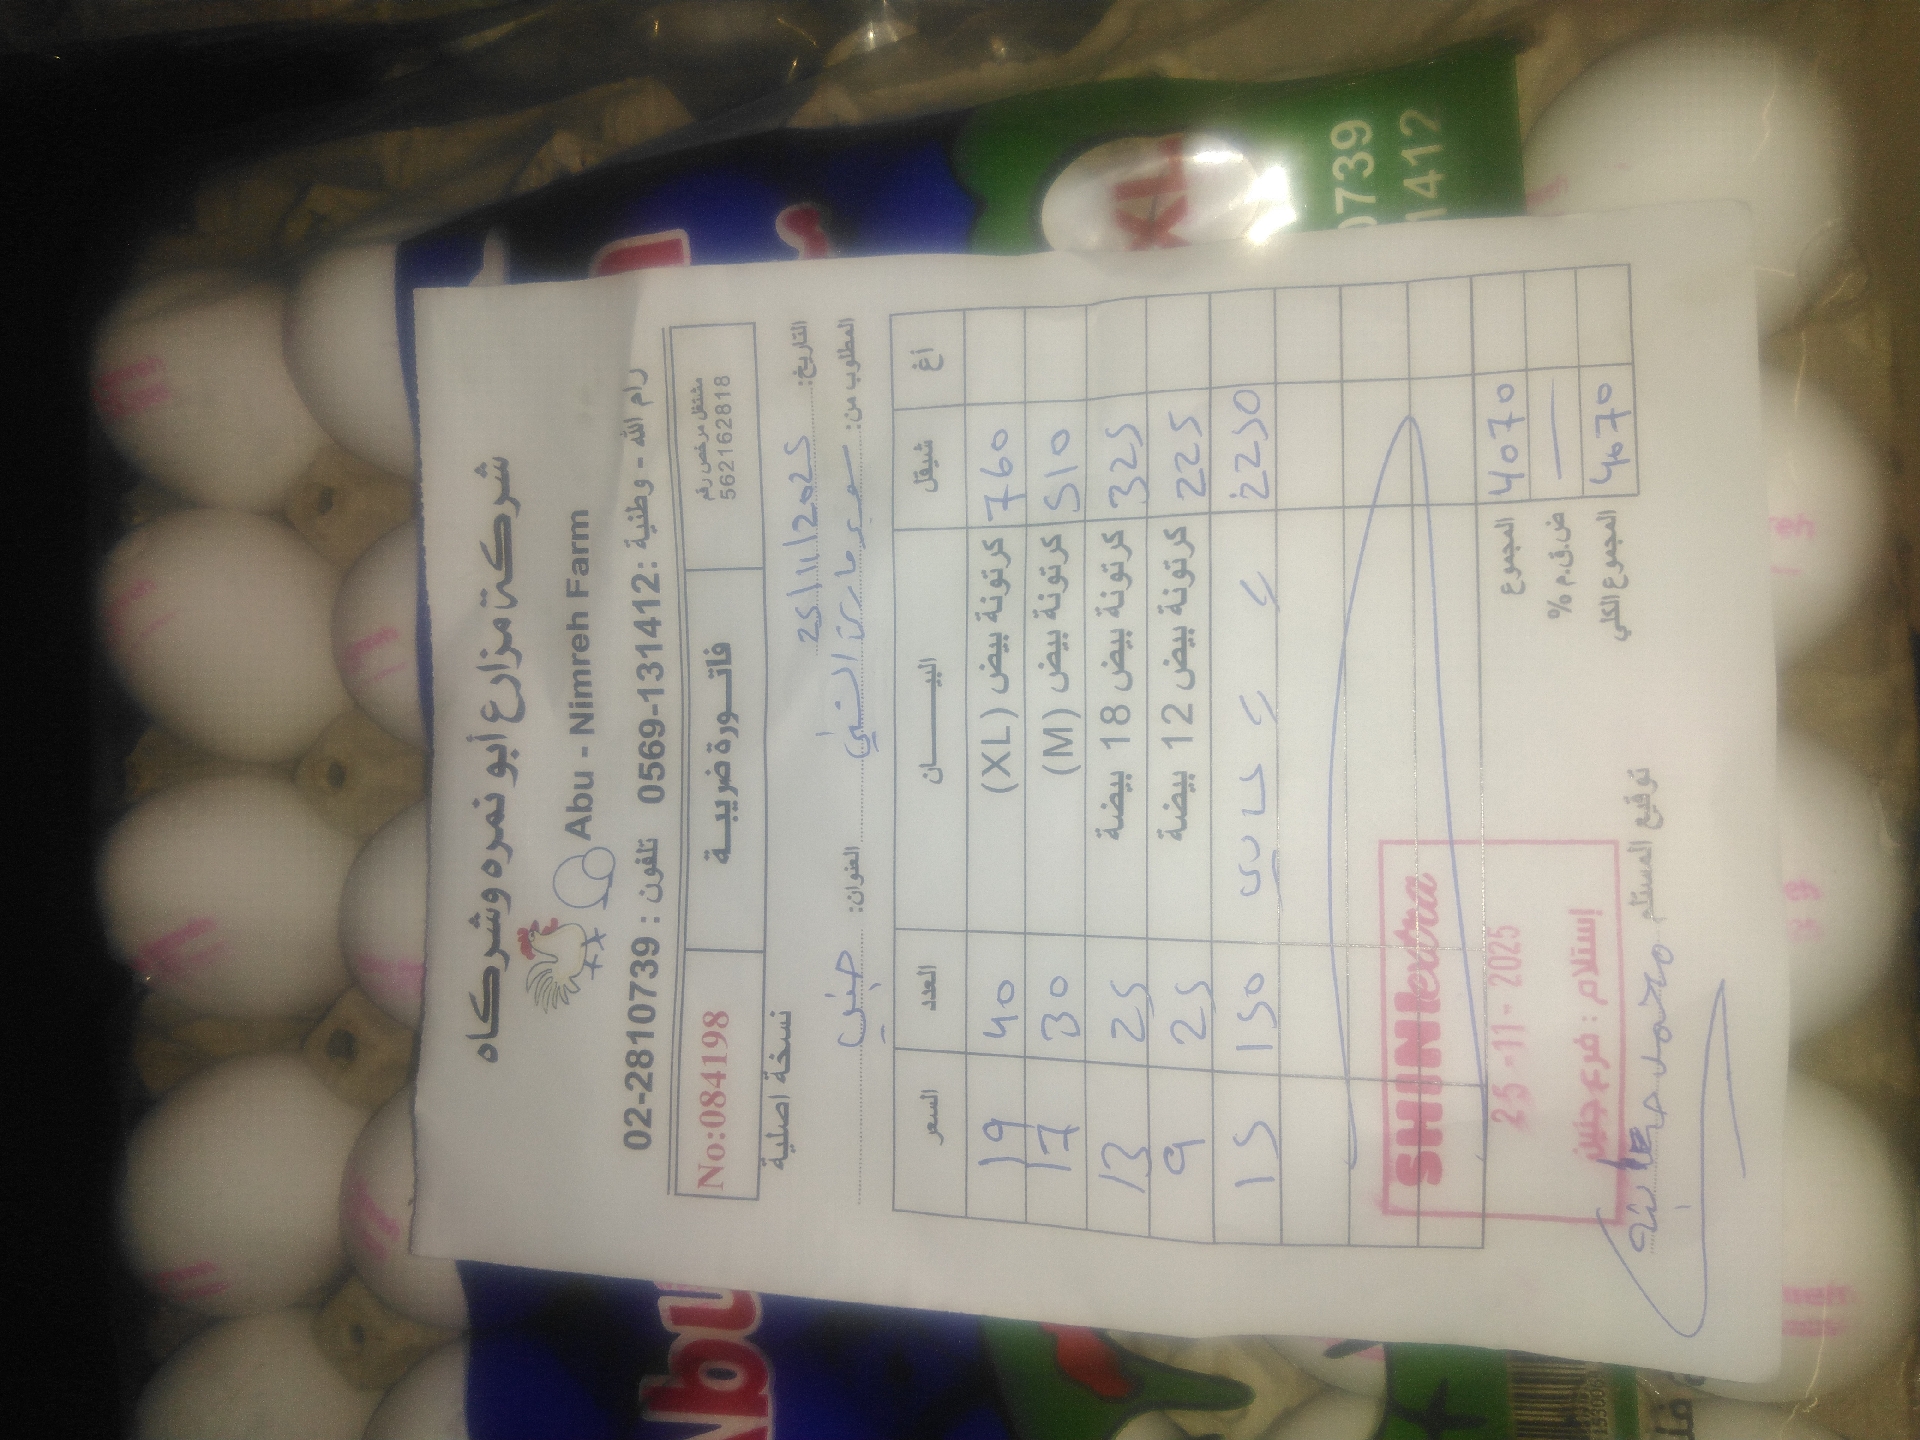 شركة مزارع أبو نمره وشركاه
Abu - Nimreh Farm
رام الله - وطنية : 0569-131412 تلفون : 02-2810739
مشتغل مرخص رقم
562162818
فاتورة ضريبية
No:084198
التاريخ: 25/11/2025
نسخة اصلية
المطلوب من: سوبر ماركت الشني العنوان: جنين
أغ شيقل البيان العدد السعر
760 كرتونة بيض (XL) 40 19
510 كرتونة بيض (M) 30 17
325 كرتونة بيض 18 بيضة 25 13
225 كرتونة بيض 12 بيضة 25 9
2250 150 15
4070 المجموع
ض.ق.م %
4070 المجموع الكلي
SHINI extra
25-11-2025
إستلام : فرع جنين
توقيع المستلم محمد
XL
0739
1412